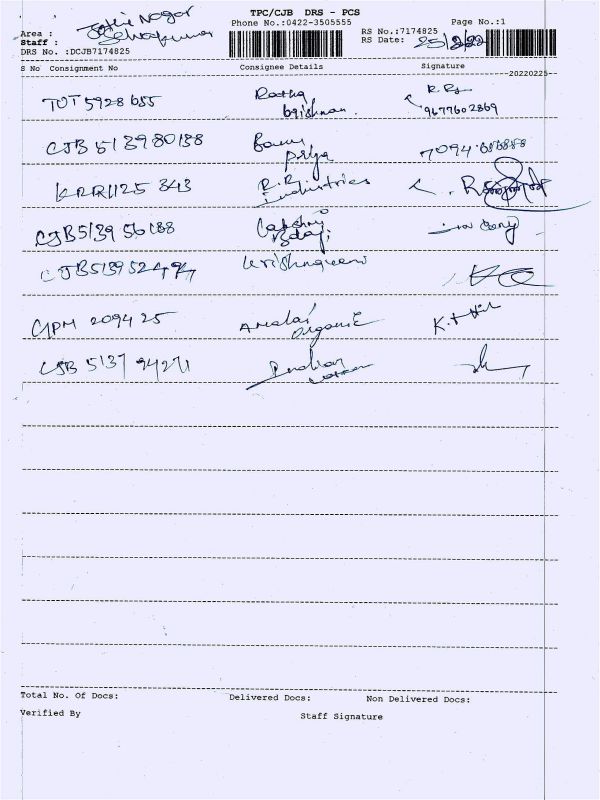 TPC/CJB DRS - PCS
Phone No.:0422-3505555
Page No.:1
Area : Nagar
Staff : Selvakumar
RS No.:7174825
RS Date: 25/2/22
DRS No. :DCJB7174825
S No Consignment No Consignee Details Signature
20220225
TOT 5928655 Radha
krishnan. 9677602869
CJB 513980188 Banu
priya 7094
KRR1125 343 R.R
Industries
CJB5139 56188 Lakshmi
Balaji
CJB513952494 Krishnaveni
CJPM 2094 25 Amalai
Organic K.
CJB 5137 94271 Indian
Total No. Of Docs: Delivered Docs: Non Delivered Docs:
Verified By Staff Signature